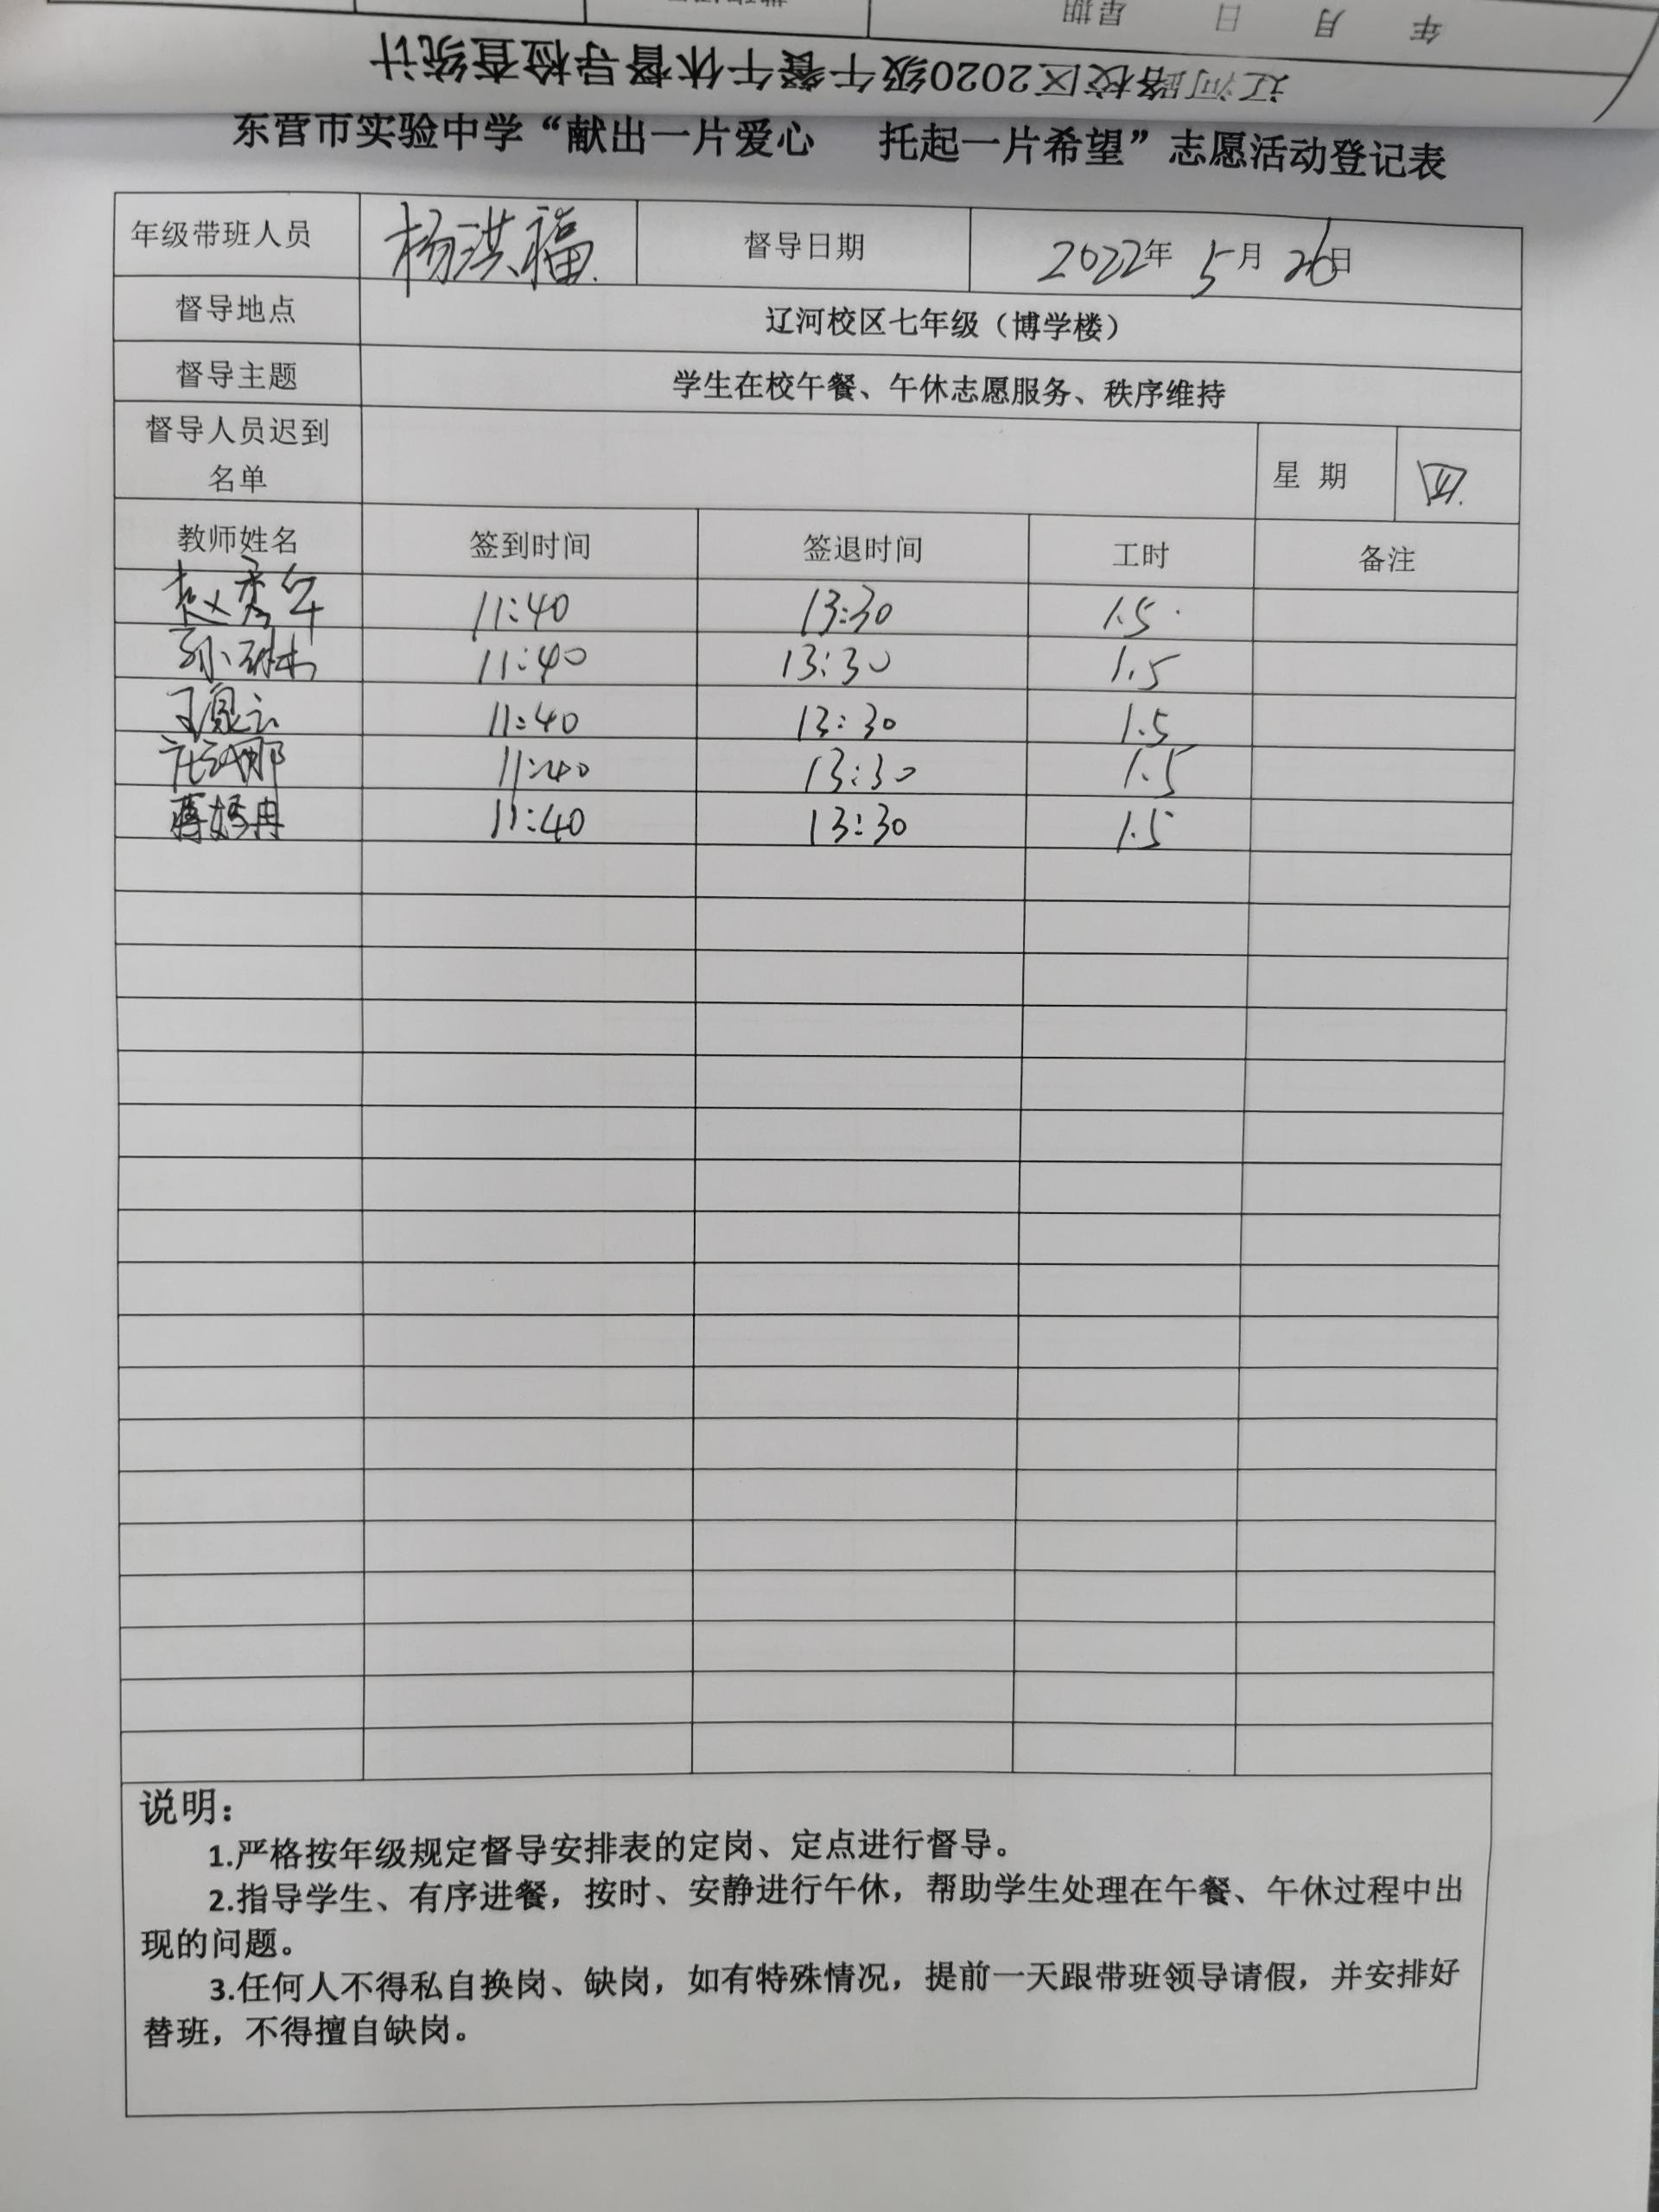 年 月 日 星期
辽河路校区2020级午餐午休督导检查统计
东营市实验中学“献出一片爱心 托起一片希望”志愿活动登记表
年级带班人员 杨洪福 督导日期 2022年 5月 26日
督导地点 辽河校区七年级（博学楼）
督导主题 学生在校午餐、午休志愿服务、秩序维持
督导人员迟到名单 星 期 四
教师姓名 签到时间 签退时间 工时 备注
赵秀军 11:40 13:30 1.5
孙 11:40 13:30 1.5
王 11:40 13:30 1.5
娜 11:40 13:30 1.5
蒋 冉 11:40 13:30 1.5
说明：
1.严格按年级规定督导安排表的定岗、定点进行督导。
2.指导学生、有序进餐，按时、安静进行午休，帮助学生处理在午餐、午休过程中出
现的问题。
3.任何人不得私自换岗、缺岗，如有特殊情况，提前一天跟带班领导请假，并安排好
替班，不得擅自缺岗。